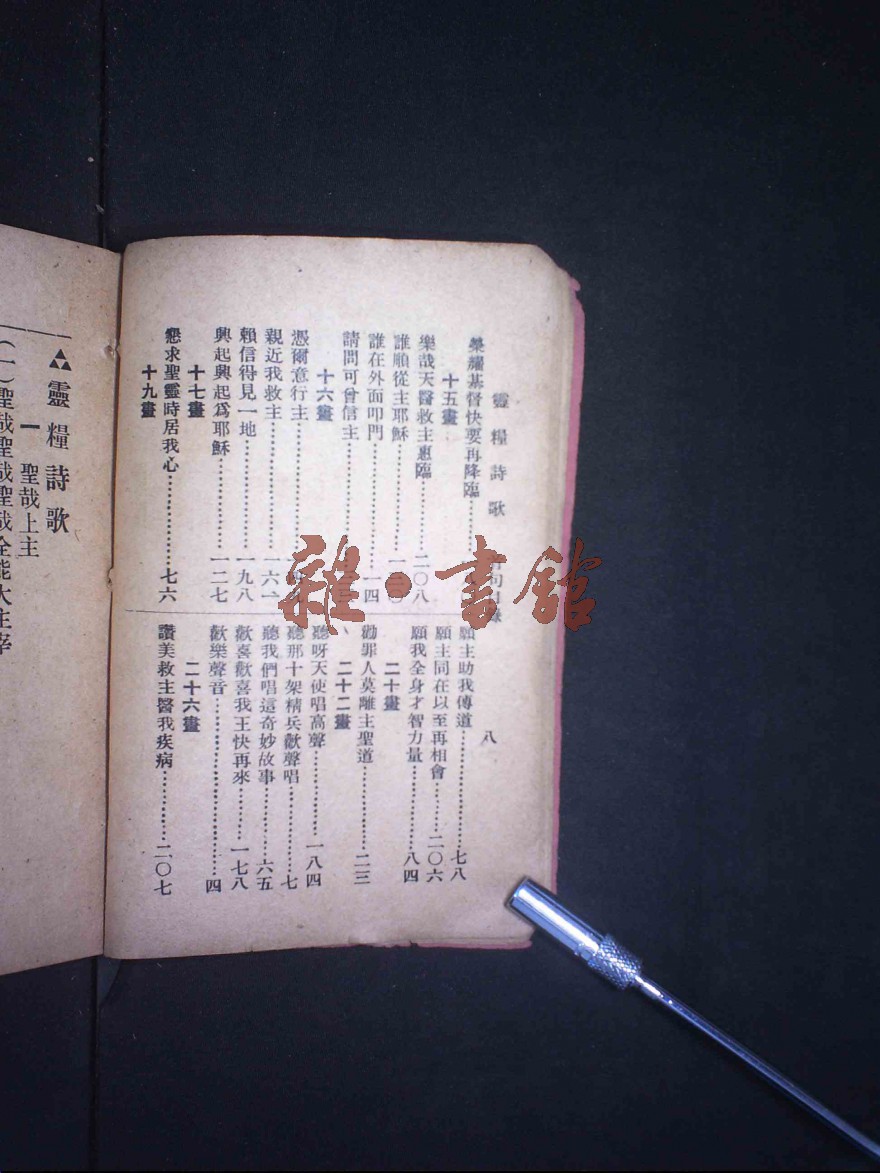 靈糧詩歌
八
榮耀基督快要再降臨
十五畫
樂哉天醫救主惠臨 二〇八
誰順從主耶穌
誰在外面叩門 一四
請問可曾信主
十六畫
憑爾意行主
親近我救主 一六一
賴信得見一地 一九八
興起興起爲耶穌 一二七
十七畫
懇求聖靈時居我心 七六
十九畫
願主助我傳道 七八
願主同在以至再相會 二〇六
願我全身才智力量 八四
二十畫
勸罪人莫離主聖道 二三
二十二畫
聽呀天使唱高聲 一八四
聽那十架精兵歡聲唱 七
聽我們唱這奇妙故事 六五
歡喜歡喜我王快再來 一七八
歡樂聲音 四
二十六畫
讚美救主醫我疾病 二〇七
靈糧詩歌
一 聖哉上主
(一)聖哉聖哉聖哉全能大主宰
雜·書館